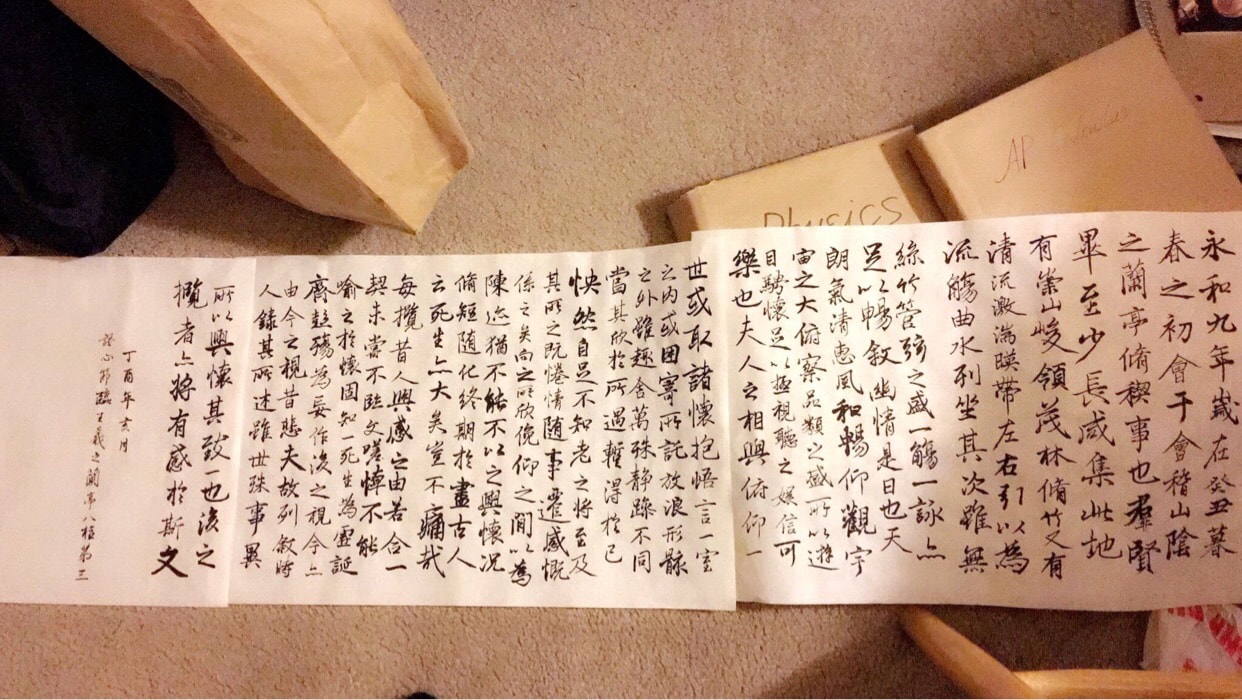 永和九年歲在癸丑暮
春之初會于會稽山陰
之蘭亭脩稧事也羣賢
畢至少長咸集此地
有崇山峻領茂林脩竹又有
清流激湍暎帶左右引以為
流觴曲水列坐其次雖無
絲竹管弦之盛一觴一詠亦
足以暢敘幽情是日也天
朗氣清惠風和暢仰觀宇
宙之大俯察品類之盛所以遊
目騁懷足以極視聽之娛信可
樂也夫人之相與俯仰一
世或取諸懷抱悟言一室
之內或因寄所託放浪形骸
之外雖趣舍萬殊静躁不同
當其欣於所遇暫得於己
怏然自足不知老之將至及
其所之既惓情隨事遷感慨
係之矣向之所欣俛仰之閒以為
陳迹猶不能不以之興懷況
脩短隨化終期於盡古人
云死生亦大矣豈不痛哉
每攬昔人興感之由若合一
契未嘗不臨文嗟悼不能
喻之於懷固知一死生為虛誕
齊彭殤為妄作後之視今亦
由今之視昔悲夫故列敘時
人錄其所述雖世殊事異
所以興懷其致一也後之
攬者亦將有感於斯文
丁酉年玄月
臨王羲之蘭亭八柱第三
Physics
AP